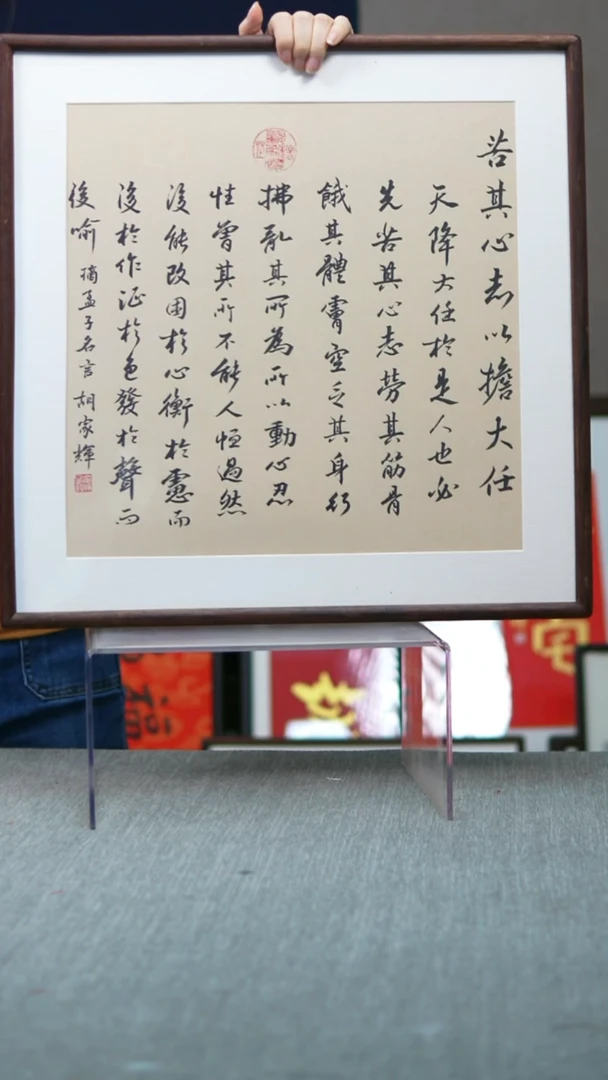 苦其心志以擔大任
天降大任於是人也必
先苦其心志勞其筋骨
餓其體膚空乏其身行
拂亂其所為所以動心忍
性曾其所不能人恒過然
後能改困於心衡於慮而
後於作征於色發於聲而
後喻 摘孟子名言 胡家輝